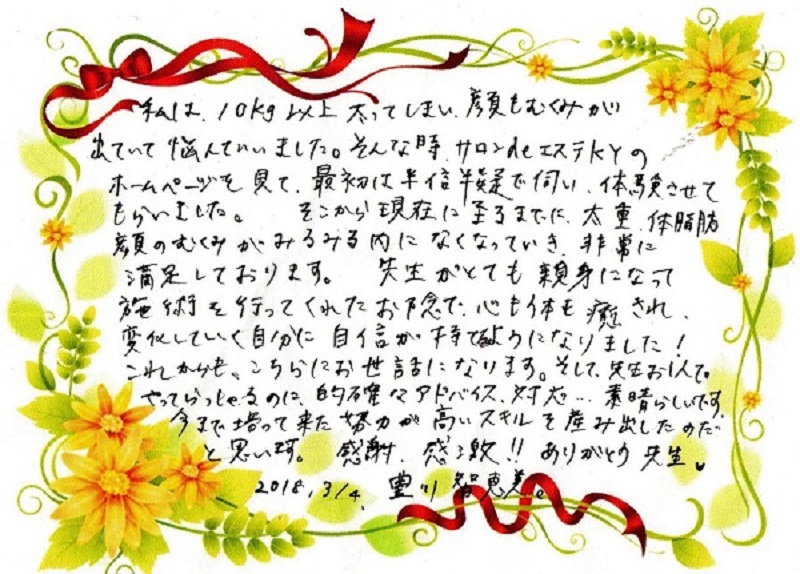 私は、10kg以上太ってしまい、顔もむくみが
出ていて悩んでいました。そんな時、サロンdeエステKYの
ホームページを見て、最初は半信半疑で伺い、体験させて
もらいました。 そこから現在に至るまでに、太重、体脂肪
顔のむくみがみるみる内になくなっていき、非常に
満足しております。 先生がとても親身になって
施術を行ってくれたお陰で、心も体も癒され、
変化していく自分に自信が持てるようになりました!
これからも、こちらにお世話になります。そして、先生お1人で。
やってらっしゃるのに、的確なアドバイス、対応… 素晴らしいです。
今まで培って来た努力が高いスキルを産み出したのだ
と思います。感謝、感激!! ありがとう 先生。
2018.3/4. 豊川 智恵美。